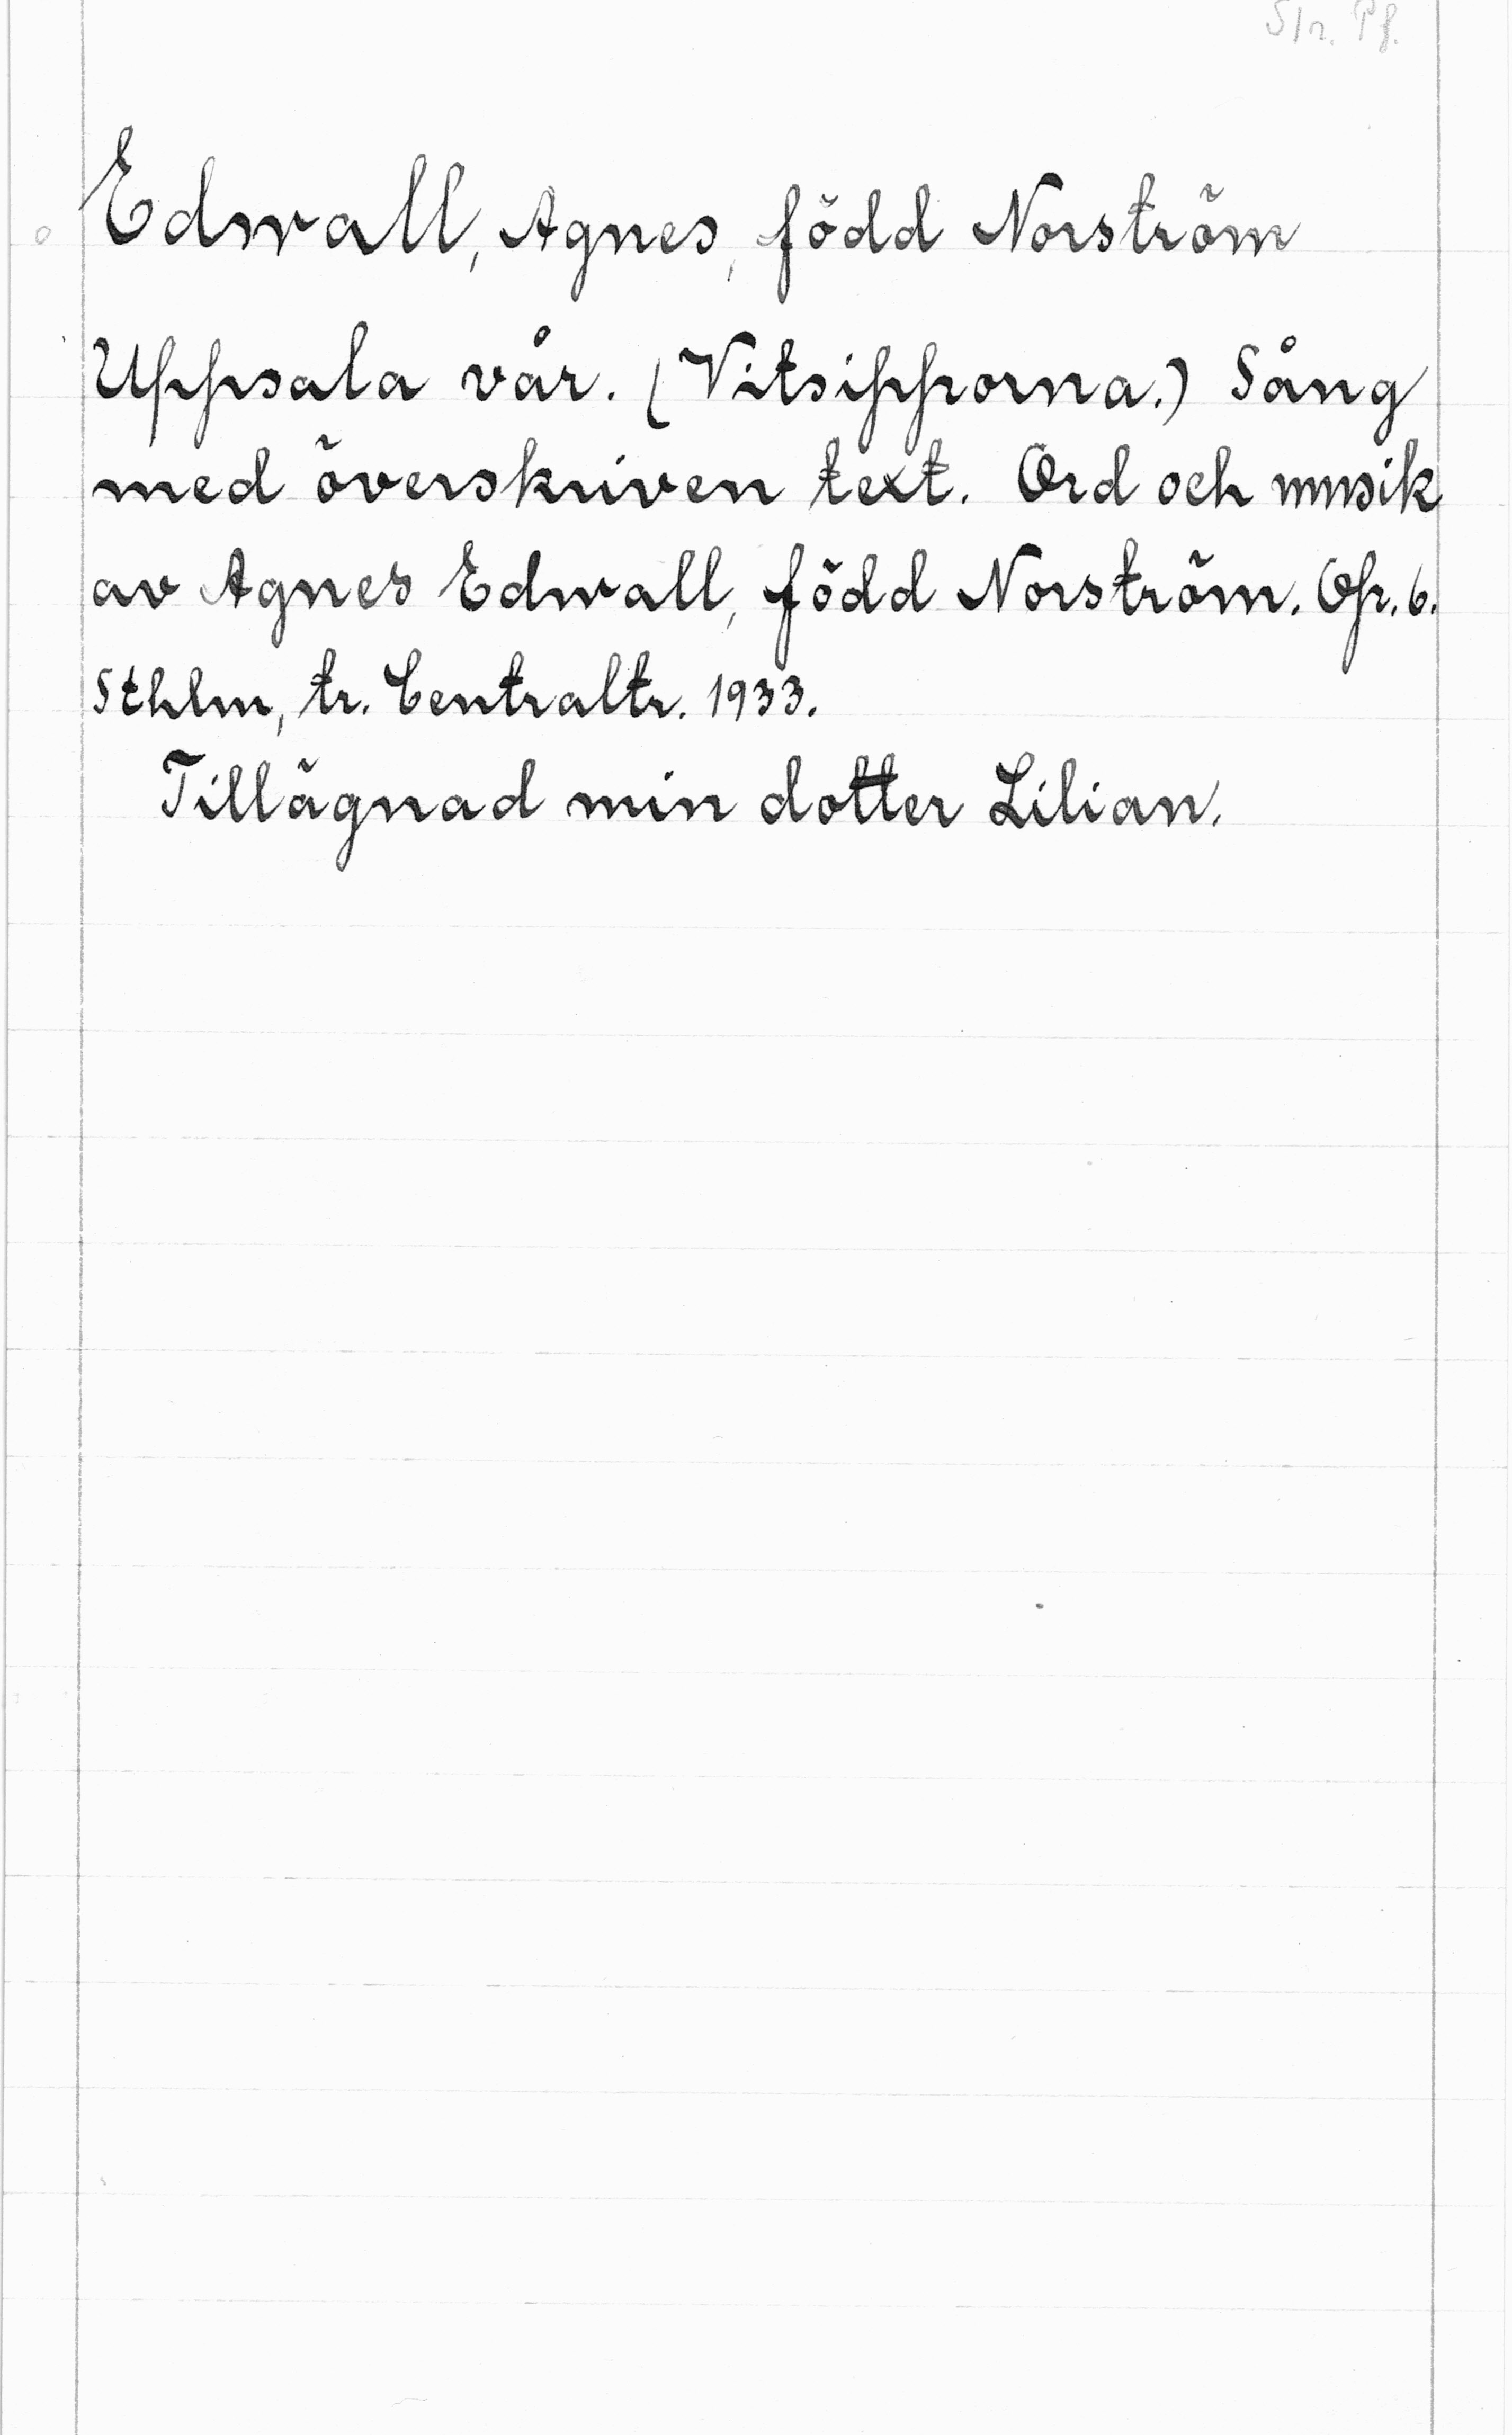 S/r. Pf.
Edwall, Agnes, född Norström
Uppsala vår. (Vitsipporna.) Sång
med överskriven text. Ord och musik
av Agnes Edwall, född Norström. Op. 6.
Sthlm, tr. Centraltr. 1933.
Tillägnad min dotter Lilian.